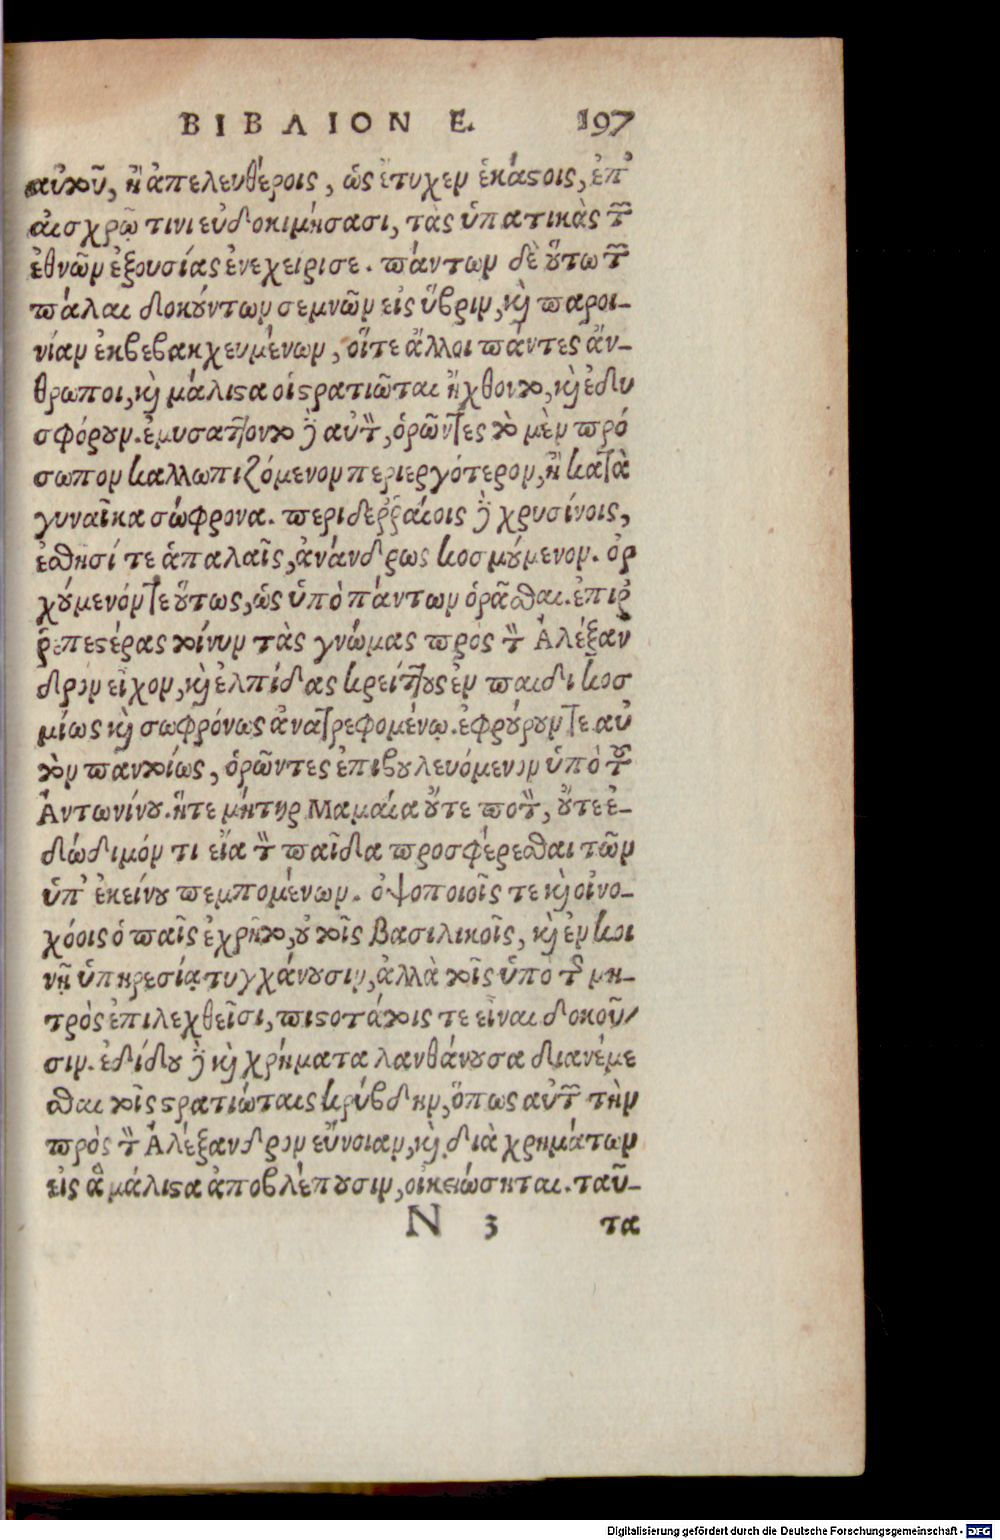 ΒΙΒΛΙΟΝ Ε. 197
αὐτοῦ, ἢ ἀπελευθέροις, ὡς ἔτυχεν ἑκάστοις, ἐπ᾽
αἰσχρῷ τινι εὐδοκιμήσασι, τὰς ὑπατικὰς τῶν
ἐθνῶν ἐξουσίας ἐνεχείρισε. πάντων δὲ οὕτω τῶν
πάλαι δοκούντων σεμνῶν εἰς ὕβριν, καὶ παροι-
νίαν ἐκβεβακχευμένων, οἵτε ἄλλοι πάντες ἄν-
θρωποι, καὶ μάλιστα οἱ στρατιῶται ἤχθοντο, καὶ ἐδυ
σφόρουν. ἐμυσάττοντο δὲ αὐτὸν, ὁρῶντες τὸ μὲν πρό
σωπον καλλωπιζόμενον περιεργότερον, ἢ κατὰ
γυναῖκα σώφρονα. περιδερραίοις δὲ χρυσίνοις,
ἐσθησί τε ἁπαλαῖς, ἀνάνδρως κοσμούμενον. ὀρ
χούμενόν τε οὕτως, ὡς ὑπὸ πάντων ὁρᾶσθαι. ἐπιρ
ῥεπεστέρας τοίνυν τὰς γνώμας πρὸς τὸν Ἀλέξαν
δρον εἶχον, καὶ ἐλπίδας κρείττους ἐν παιδὶ κοσ
μίως καὶ σωφρόνως ἀνατρεφομένῳ. ἐφρούρουν τε αὐ
τὸν παντοίως, ὁρῶντες ἐπιβουλευόμενον ὑπὸ τοῦ
Ἀντωνίνου. ἥτε μήτηρ Μαμαία οὔτε ποτὸν, οὔτε ἐ-
δώδιμόν τι εἴα τὸν παῖδα προσφέρεσθαι τῶν
ὑπ᾽ ἐκείνου πεμπομένων. ὀψοποιοῖς τε καὶ οἰνο-
χόοις ὁ παῖς ἐχρῆτο, οὐ τοῖς βασιλικοῖς, καὶ ἐν κοι
νῇ ὑπηρεσίᾳ τυγχάνουσιν, ἀλλὰ τοῖς ὑπὸ τῆς μη-
τρὸς ἐπιλεχθεῖσι, πιστοτάτοις τε εἶναι δοκοῦ/
σιν. ἐδίδου δὲ καὶ χρήματα λανθάνουσα διανέμε
σθαι τοῖς στρατιώταις κρύβδην, ὅπως αὐτῶν τὴν
πρὸς τὸν Ἀλέξανδρον εὔνοιαν, καὶ διὰ χρημάτων
εἰς ἃ μάλιστα ἀποβλέπουσιν, οἰκειώσηται. ταῦ-
N 3 τα
Digitalisierung gefördert durch die Deutsche Forschungsgemeinschaft - DFG